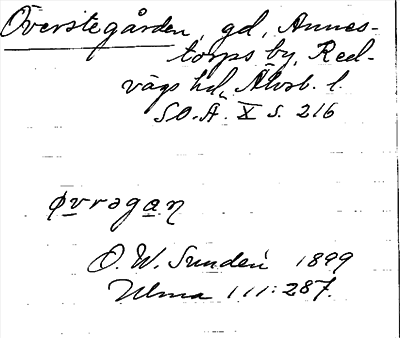 Överstegården, gd, Annes-
torps by, Red-
vägs hd, Älvsb. l.
SO.Ä. X s. 216
øvrəgan
O. W. Sundén 1899
Ulma 111:287.